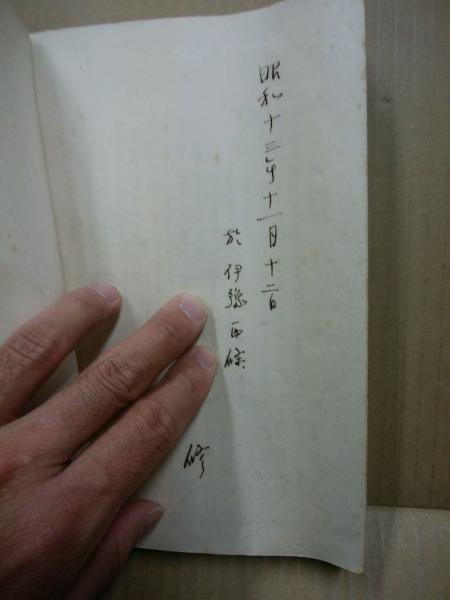 昭和十三年十一月十二日
於伊豫西條
修